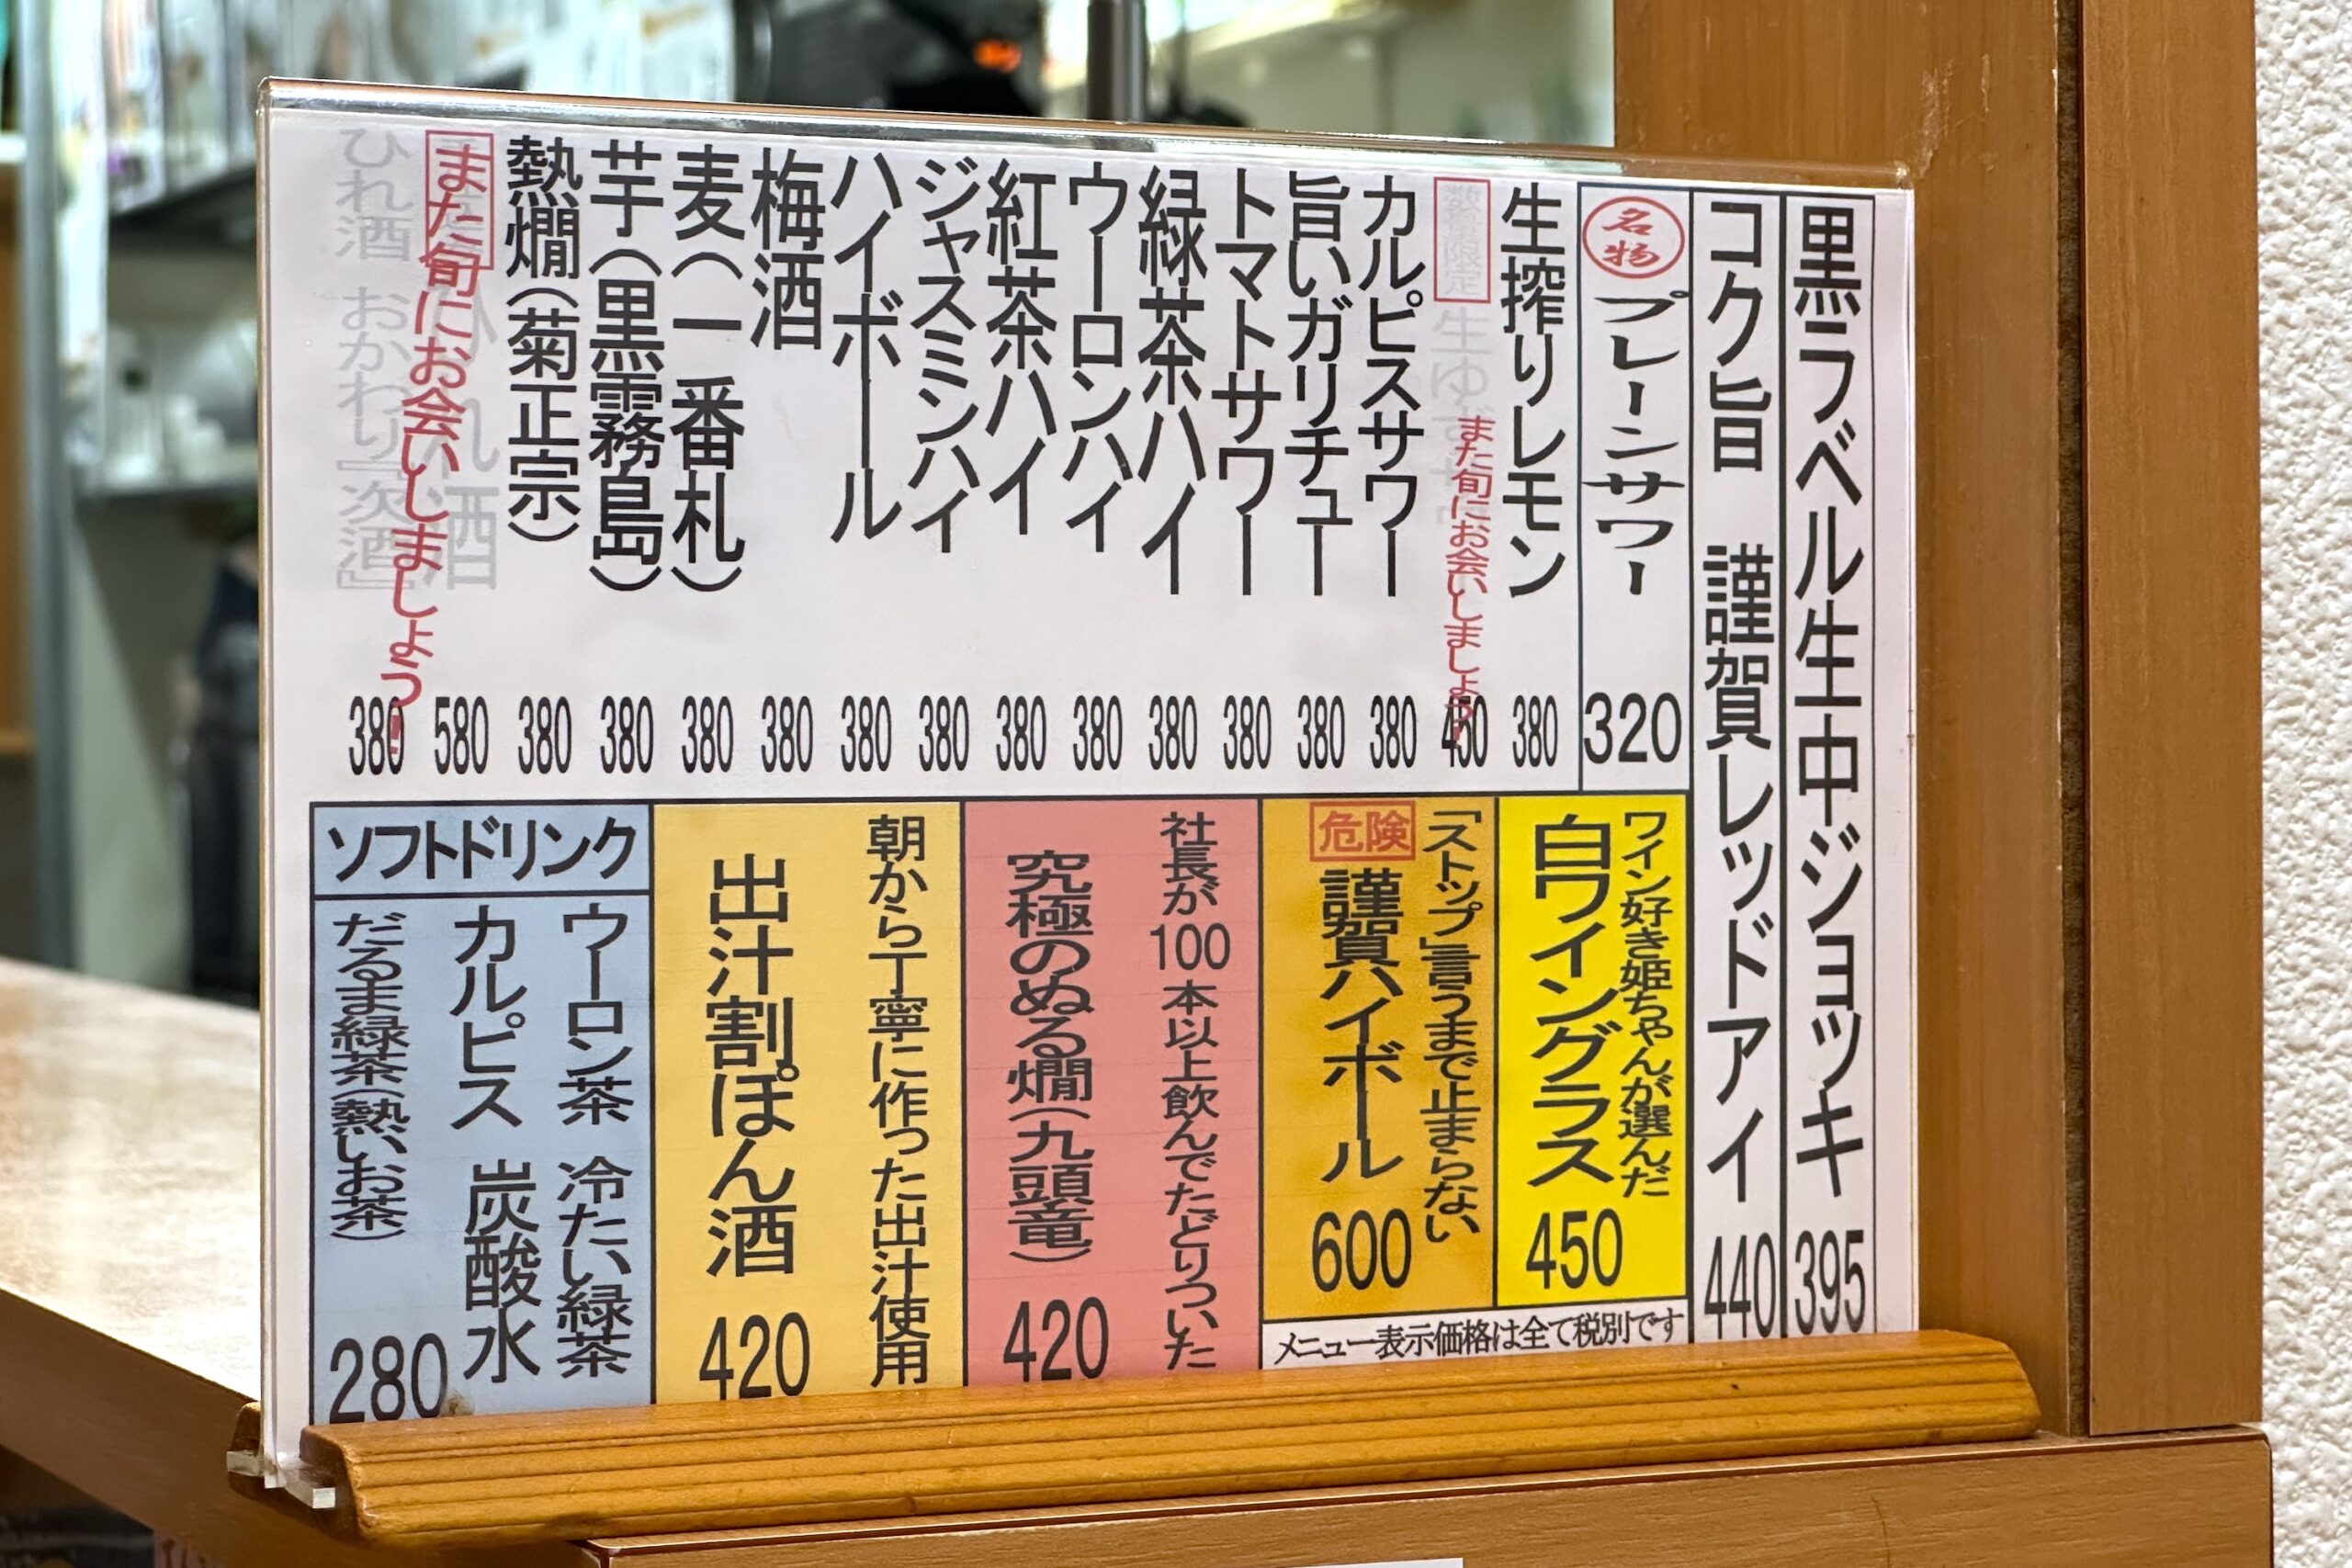 黒ラベル生中ジョッキ 395
コク旨 謹賀レッドアイ 440
名物 プレーンサワー 320
生搾りレモン 380
数量限定 生ゆず 450
また旬にお会いしましょう!
カルピスサワー 380
旨いガリチュー 380
トマトサワー 380
緑茶ハイ 380
ウーロンハイ 380
紅茶ハイ 380
ジャスミンハイ 380
ハイボール 380
梅酒 380
麦(一番札) 380
芋(黒霧島) 380
熱燗(菊正宗) 380
ひれ酒 580
また旬にお会いしましょう!
ひれ酒 おかわり『次酒』 380
ワイン好き姫ちゃんが選んだ
白ワイングラス 450
「ストップ」言うまで止まらない
危険 謹賀ハイボール 600
メニュー表示価格は全て税別です
社長が100本以上飲んでたどりついた
究極のぬる燗(九頭竜) 420
朝から丁寧に作った出汁使用
出汁割ぽん酒 420
ソフトドリンク
ウーロン茶 冷たい緑茶
カルピス 炭酸水
だるま緑茶(熱いお茶) 280